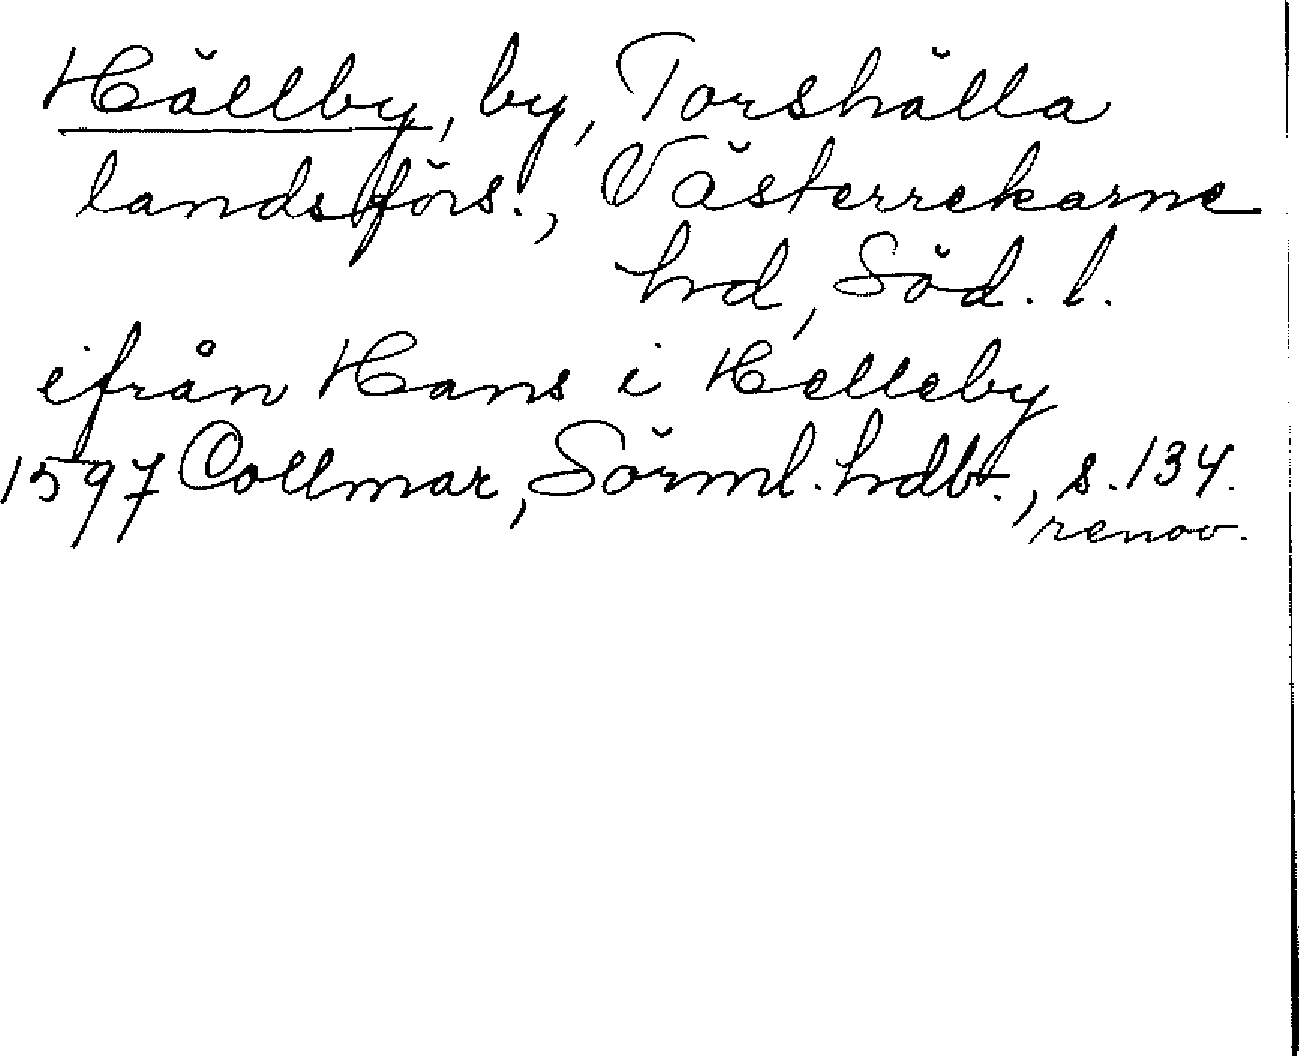 Hällby, by, Torshälla
landsförs., Västerrekarne
hd, Söd. l.
ifrån Hans i Helleby
1597 Collmar, Sörml. hdbt., s. 134.
renov.